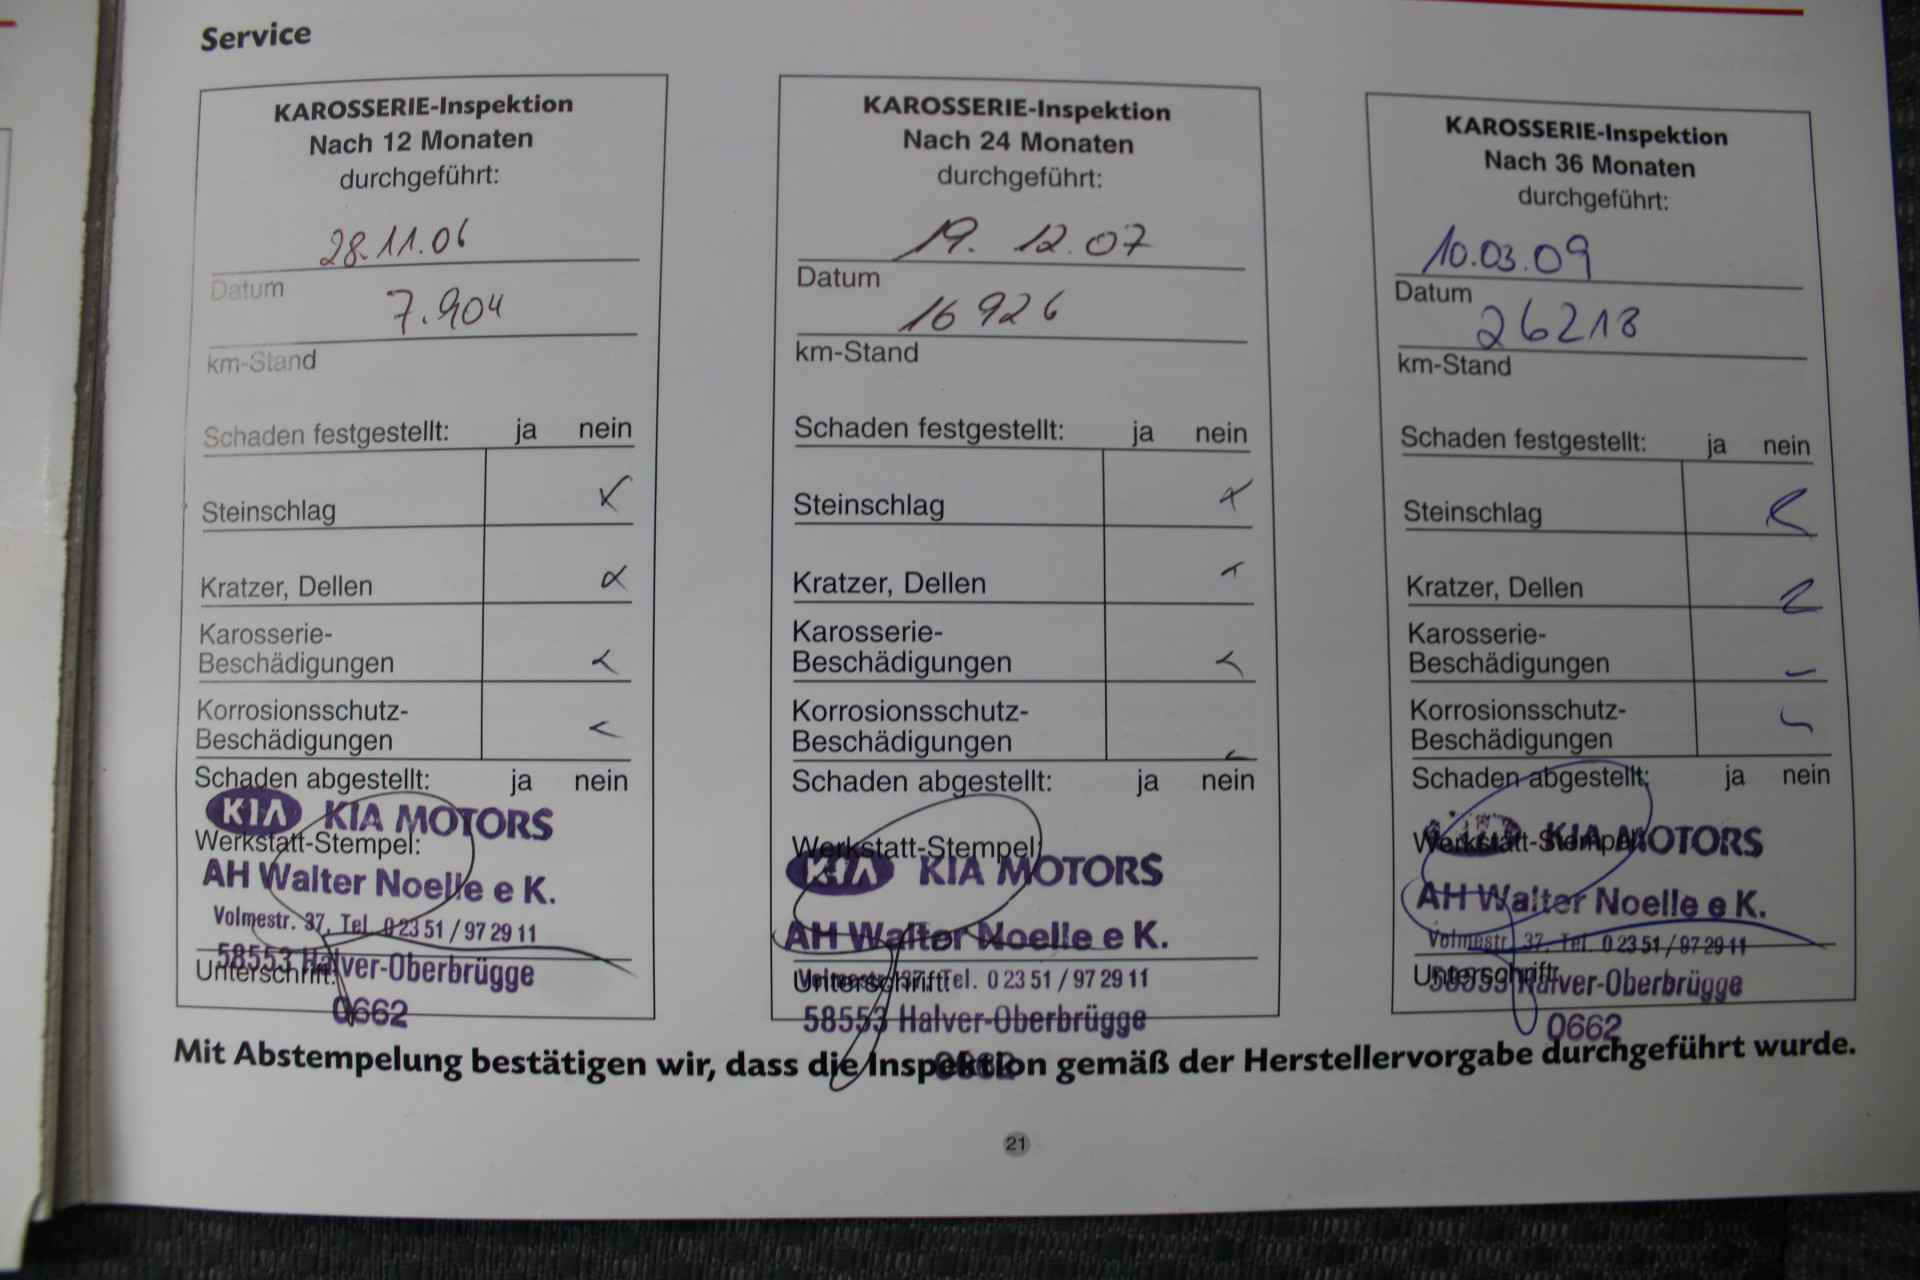 Service
KAROSSERIE-Inspektion
Nach 12 Monaten
durchgeführt:
28.11.06
Datum
7.904
km-Stand
Schaden festgestellt: ja nein
Steinschlag
Kratzer, Dellen
Karosserie-
Beschädigungen
Korrosionsschutz-
Beschädigungen
Schaden abgestellt: ja nein
KIA KIA MOTORS
Werkstatt-Stempel:
AH Walter Noelle e K.
Volmestr. 37, Tel. 0 23 51 / 97 29 11
58553 Halver-Oberbrügge
Unterschrift:
0662
KAROSSERIE-Inspektion
Nach 24 Monaten
durchgeführt:
19. 12.07
Datum
16 926
km-Stand
Schaden festgestellt: ja nein
Steinschlag
Kratzer, Dellen
Karosserie-
Beschädigungen
Korrosionsschutz-
Beschädigungen
Schaden abgestellt: ja nein
Werkstatt-Stempel:
KIA KIA MOTORS
AH Walter Noelle e K.
Volmestr. 37, Tel. 0 23 51 / 97 29 11
Unterschrift:
58553 Halver-Oberbrügge
0662
KAROSSERIE-Inspektion
Nach 36 Monaten
durchgeführt:
10.03.09
Datum
26218
km-Stand
Schaden festgestellt: ja nein
Steinschlag
Kratzer, Dellen
Karosserie-
Beschädigungen
Korrosionsschutz-
Beschädigungen
Schaden abgestellt: ja nein
Werkstatt-Stempel:
KIA MOTORS
AH Walter Noelle e K.
Volmestr. 37, Tel. 0 23 51 / 97 29 11
Unterschrift:
58553 Halver-Oberbrügge
0662
Mit Abstempelung bestätigen wir, dass die Inspektion gemäß der Herstellervorgabe durchgeführt wurde.
21